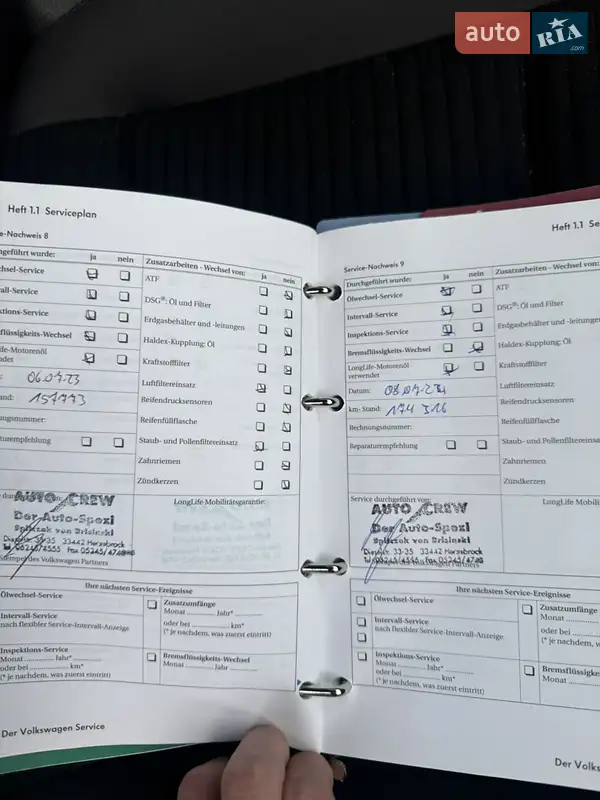 auto RIA.com
Heft 1.1 Serviceplan
e-Nachweis 8
hgeführt wurde: ja nein
hsel-Service
all-Service
ktions-Service
flüssigkeits-Wechsel
ife-Motorenöl
ndet
06.07.23
and: 157773
nungsnummer:
aturempfehlung
Zusatzarbeiten - Wechsel von: ja nein
ATF
DSG®: Öl und Filter
Erdgasbehälter und -leitungen
Haldex-Kupplung: Öl
Kraftstofffilter
Luftfiltereinsatz
Reifendrucksensoren
Reifenfüllflasche
Staub- und Pollenfiltereinsatz
Zahnriemen
Zündkerzen
e durchgeführt von:
AUTO CREW
Der Auto-Spezi
33442 Herzebrock
Stempel des Volkswagen Partners
LongLife Mobilitätsgarantie:
Ihre nächsten Service-Ereignisse
Ölwechsel-Service
Intervall-Service
nach flexibler Service-Intervall-Anzeige
Inspektions-Service
Monat ............ Jahr*............
oder bei ............ km*
(* je nachdem, was zuerst eintritt)
Zusatzumfänge
Monat ............ Jahr* ............
oder bei ............ km*
(* je nachdem, was zuerst eintritt)
Bremsflüssigkeits-Wechsel
Monat ............ Jahr ............
Der Volkswagen Service
Heft 1.1 Se
Service-Nachweis 9
Durchgeführt wurde: ja nein
Ölwechsel-Service
Intervall-Service
Inspektions-Service
Bremsflüssigkeits-Wechsel
LongLife-Motorenöl
verwendet
Datum:
km- Stand: 174 316
Rechnungsnummer:
Reparaturempfehlung
Zusatzarbeiten - Wechsel von:
ATF
DSG®: Öl und Filter
Erdgasbehälter und -leitun
Haldex-Kupplung: Öl
Kraftstofffilter
Luftfiltereinsatz
Reifendrucksensoren
Reifenfüllflasche
Staub- und Pollenfiltereinsa
Zahnriemen
Zündkerzen
Service durchgeführt von:
AUTO CREW
Der Auto-Spezi
33-35 33442 Herzebrock
Stempel des Volkswagen Partners
LongLife Mo
Ihre nächsten Service-Ereignisse
Ölwechsel-Service
Intervall-Service
nach flexibler Service-Intervall-Anzeige
Inspektions-Service
Monat ............ Jahr*............
oder bei ............ km*
(* je nachdem, was zuerst eintritt)
Zusatzumfäng
Monat ............
oder bei ............
(* je nachdem, w
Bremsflüssig
Monat ............
Der Volks